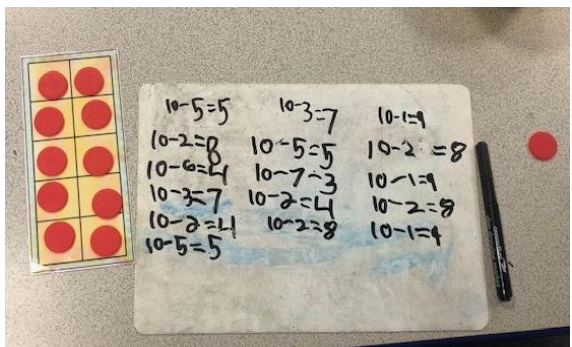 10-5=5
10-2=8
10-6=4
10-3=7
10-2=4
10-5=5
10-3=7
10-5=5
10-7-3
10-2=4
10-2=8
10-1=9
10-2 =8
10-1=9
10-2=8
10-1=9